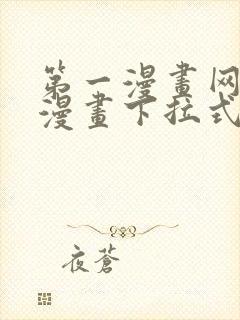 第一漫畫网
漫畫下拉式
夜蒼